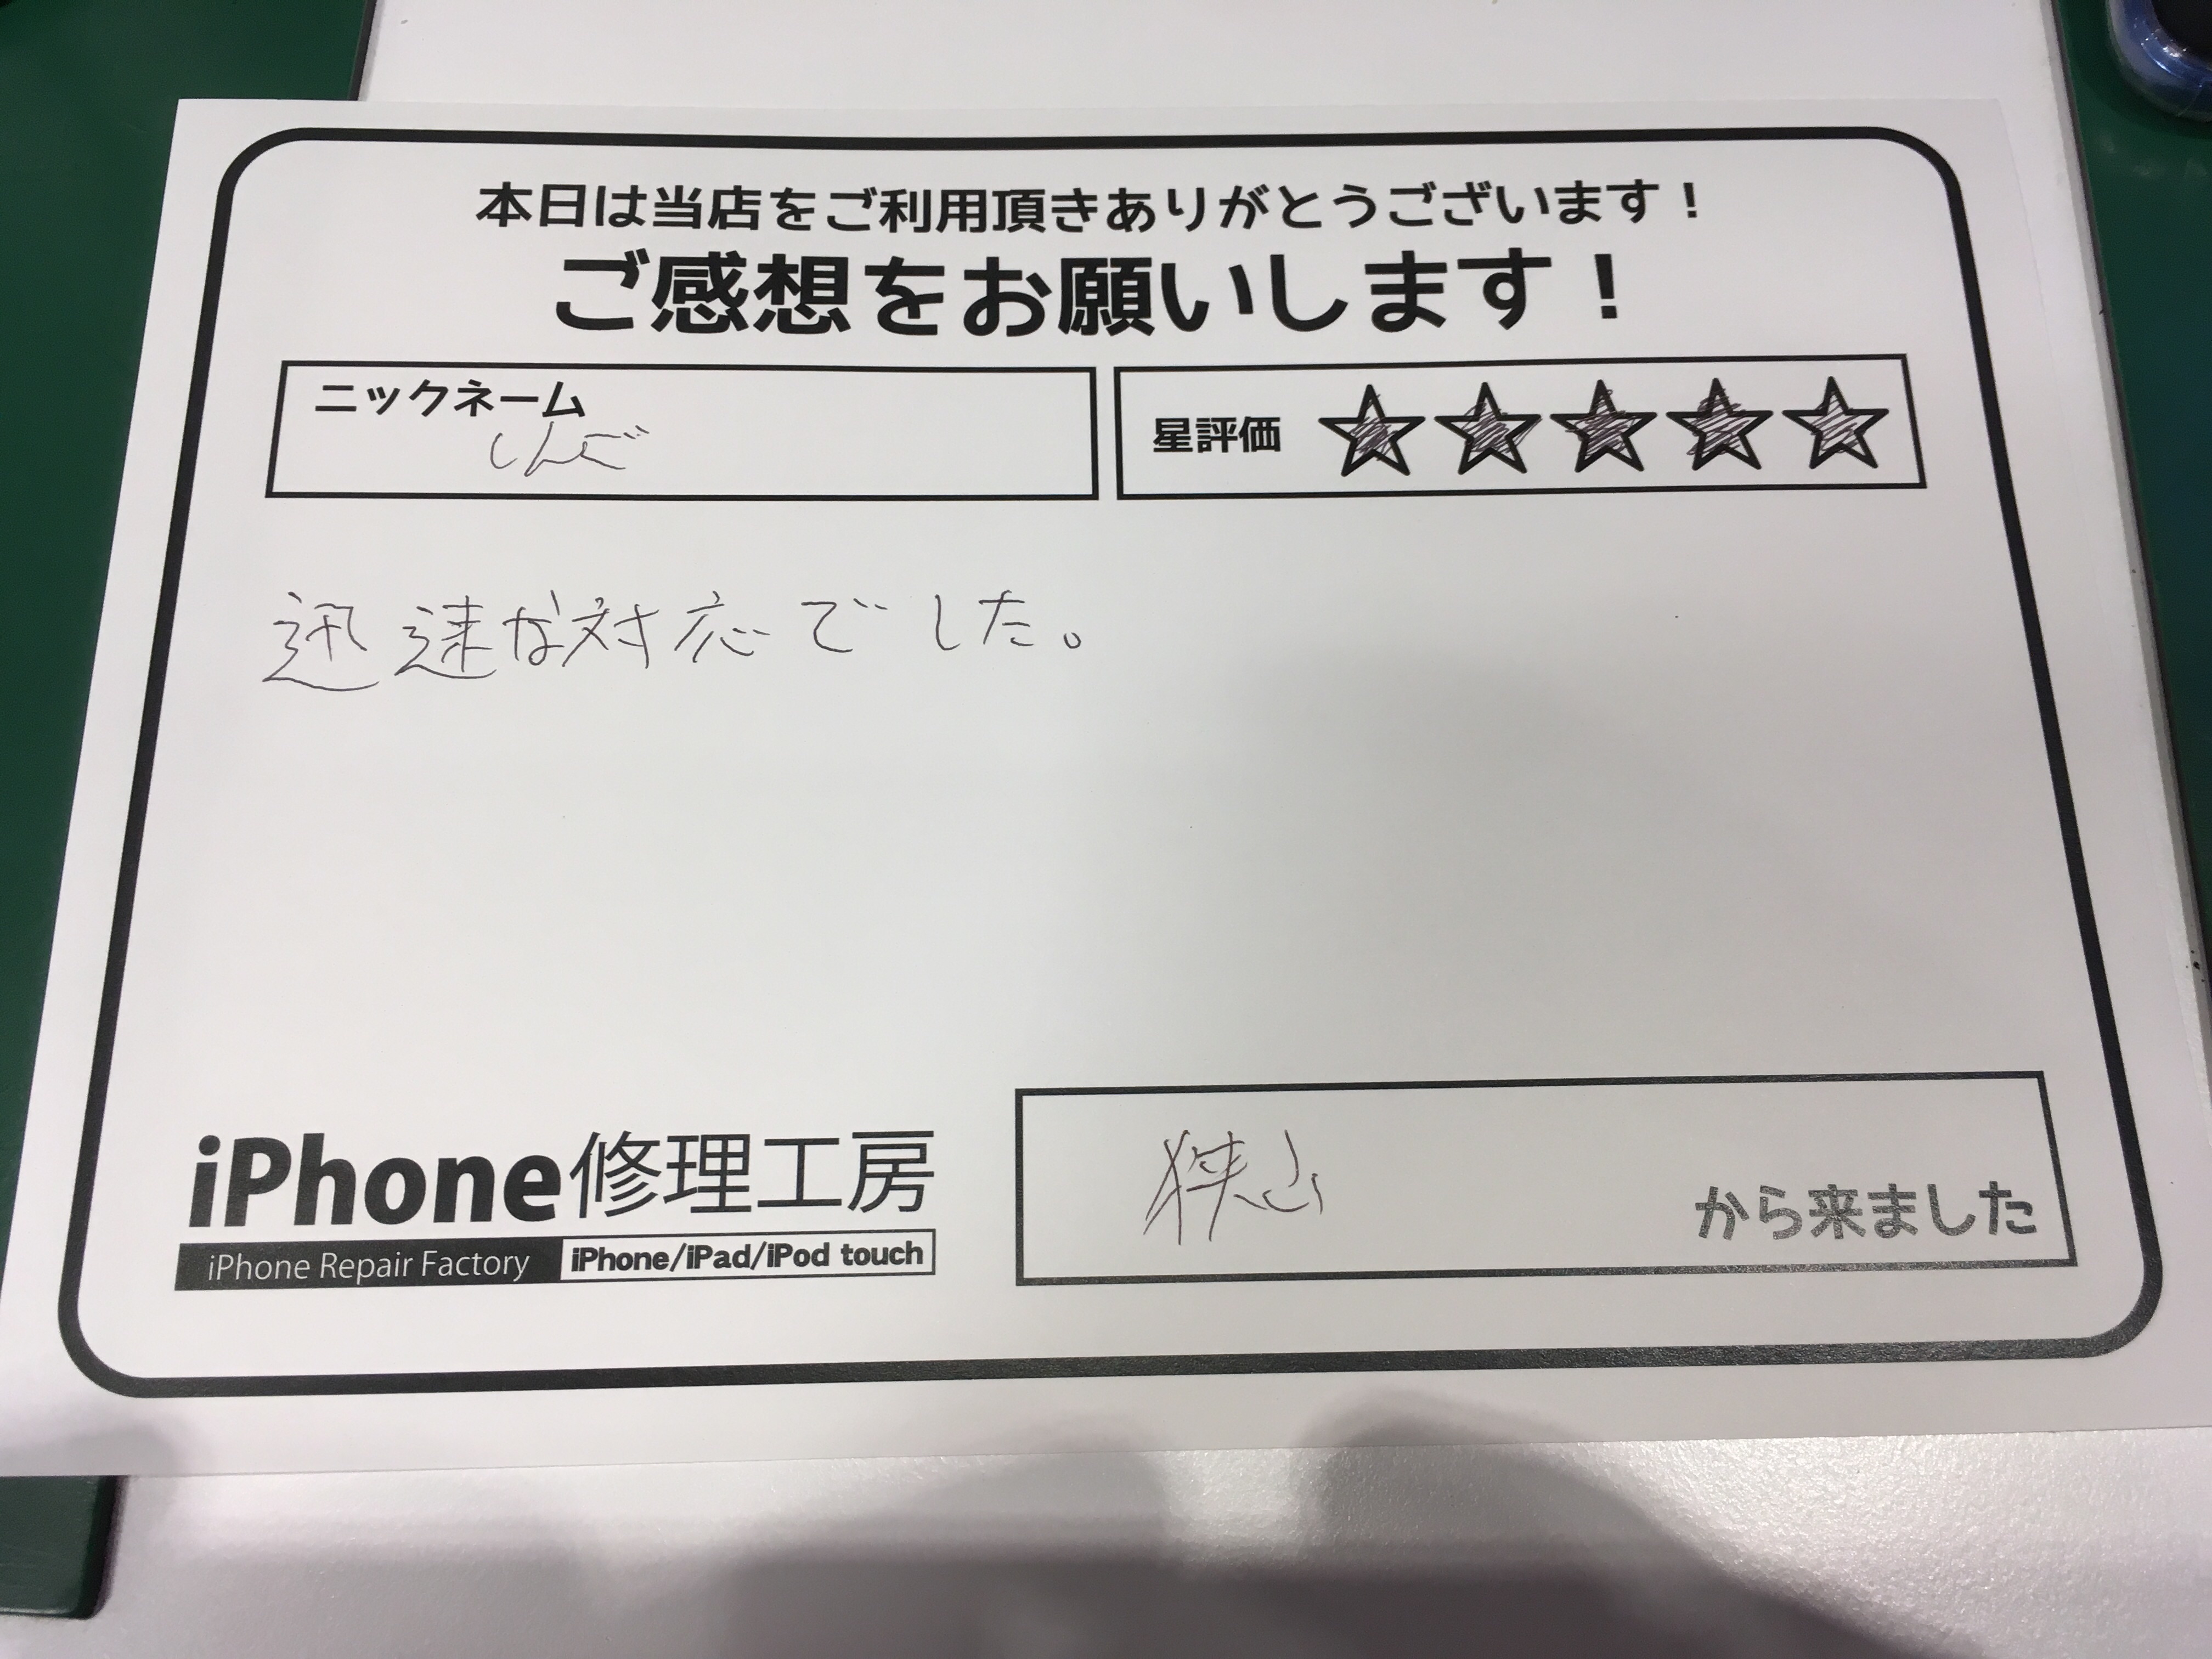 本日は当店をご利用頂きありがとうございます！
ご感想をお願いします！
ニックネーム
しんご
星評価 ★★★★★
迅速な対応でした。
iPhone修理工房
iPhone Repair Factory iPhone/iPad/iPod touch
狭山 から来ました